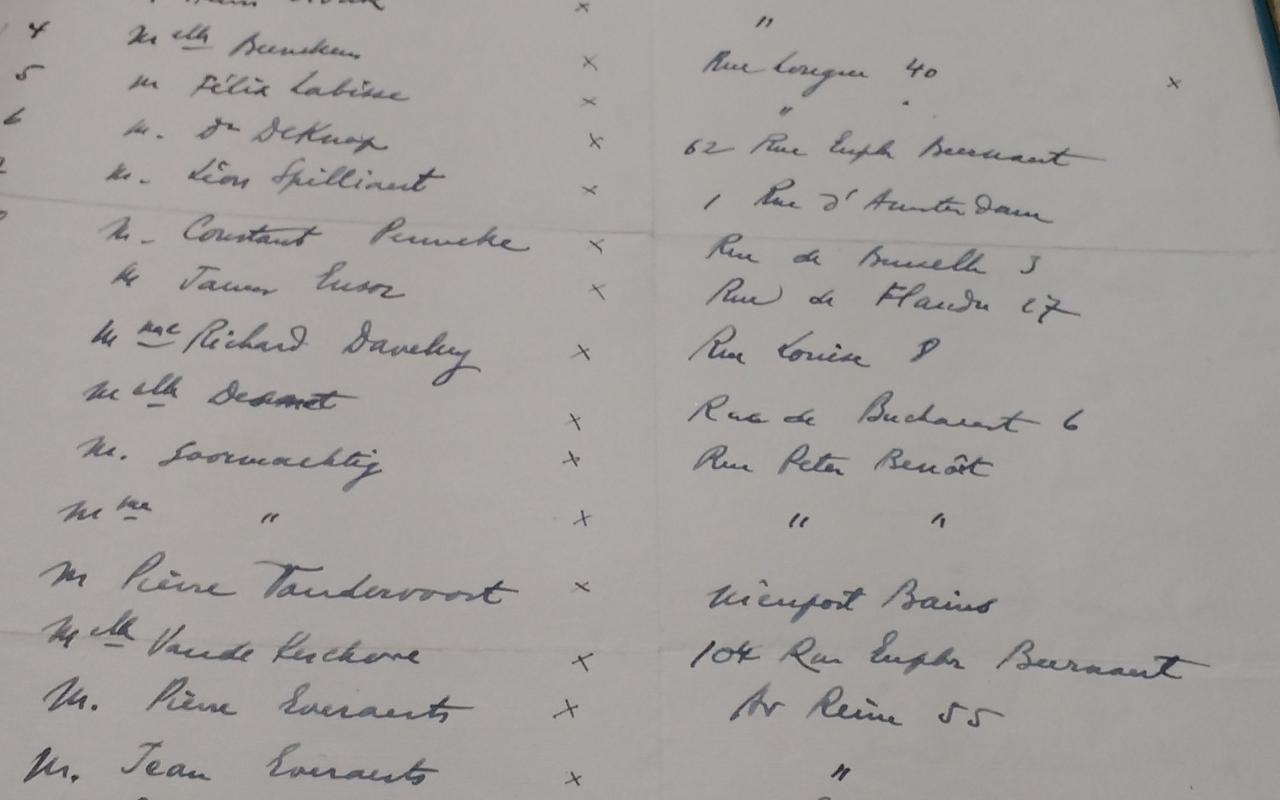 x "
4 M elle x Rue Longue 40 x
5 M Félix Labisse x " "
6 M. Dr DeKnop x 62 Rue Euph Beernaert
M. Léon Spilliaert x 1 Rue d'Amsterdam
M. Constant Permeke x Rue de Bruxelles 3
M James Ensor x Rue de Flandre 27
M me Richard Daveluy x Rue Louise 8
M elle Desmet x Rue de Bucharest 6
M. Goormachtig x Rue Peter Benoît
M me " x " "
M Pierre Vandervoort x Nieuport Bains
M elle Vande Kerckove x 104 Rue Euphr Beernaert
M. Pierre Everaerts x Av Reine 55
M. Jean Everaerts x "